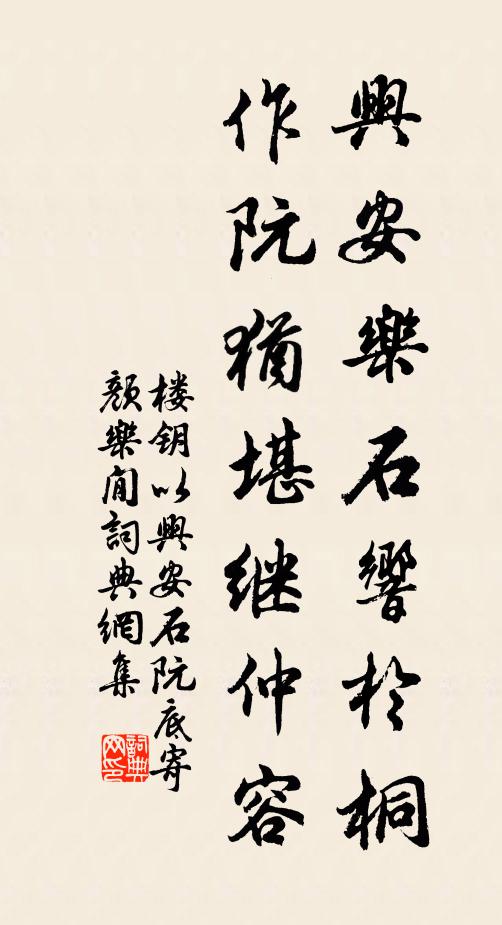 興安樂石響於桐
作阮猶堪继仲容
楼钥以興安石阮底寄
顏樂閒詞典網集
詞典
网印